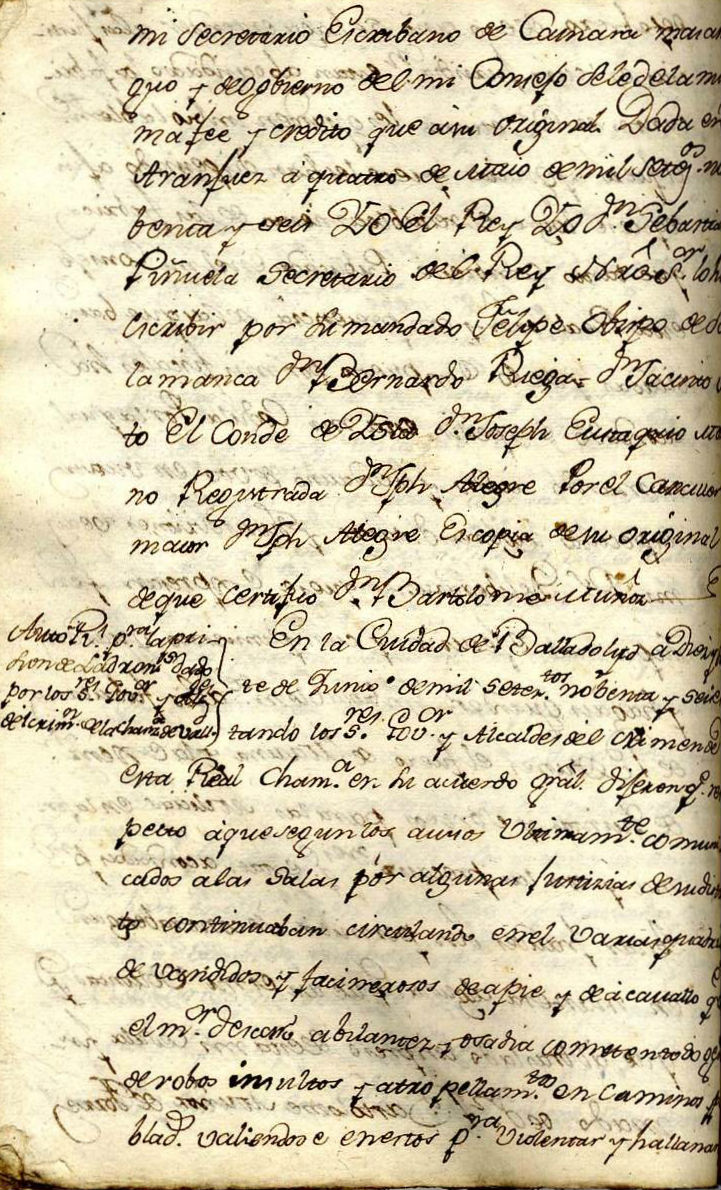 mi Secretario Escribano de Camara mas an
guo y de gobierno del mi Consejo se le de la mi
ma fee y credito que a su original. Dada en
Aranjuez a quatro de Maio de mil seteg.os no
benta y seis Yo El Rey Yo dn Sebastia
Piñuela Secretario del Rey Nro. S.or lo hi
escribir por su mandado Felipe Obispo de Sa
lamanca dn Bernardo Riega dn Jacinto
to El Conde de dn Joseph Eustaquio Mo
no Registrada dn Jph Alegre Por el Canciller
maior dn Jph Alegre Es copia de su original
de que certifico dn Bartolome Muñoz
Auto R.l p.ra la pri
sion de Ladron.es dado
por los S.res Gov.or y
del crim. de la Chan.a de Vall.
En la Ciudad de Balladolid a Diez y
te de Junio de mil setez.tos nobenta y seis
tando los S.res Gov.or y Alcaldes del Crimen de
esta Real Chan.a en su acuerdo gral. dixeron q.e res
pecto a que segun los avisos Ultimam.te comuni
cados a las Salas por algunas Justizias de su distri
to continuaban circulando en el Varias quadri
de vandidos y facinerosos de a pie y de a cavallo q
el m.r descaro abilantez y osadia cometen todo ge
de robos insultos y atropellam.tos en Caminos
blad.s valiendose en estos p.ra Violentar y hallanar